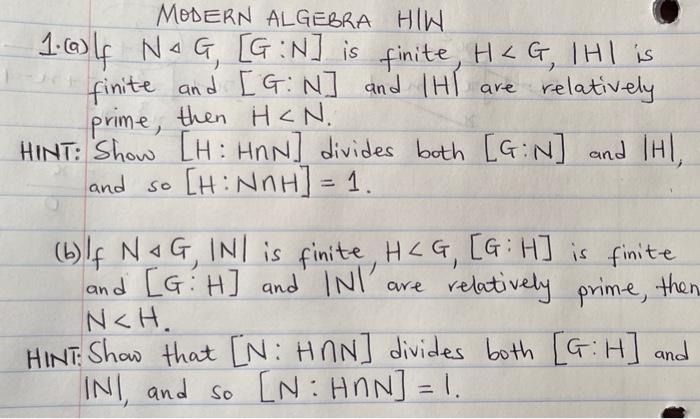 MODERN ALGEBRA H/W
1.(a) If N ◁ G, [G:N] is finite, H < G, |H| is
finite and [G:N] and |H| are relatively
prime, then H < N.
HINT: Show [H: H∩N] divides both [G:N] and |H|,
and so [H:N∩H] = 1.
(b) If N ◁ G, |N| is finite, H < G, [G:H] is finite
and [G:H] and |N| are relatively prime, then
N < H.
HINT: Show that [N: H∩N] divides both [G:H] and
|N|, and so [N: H∩N] = 1.